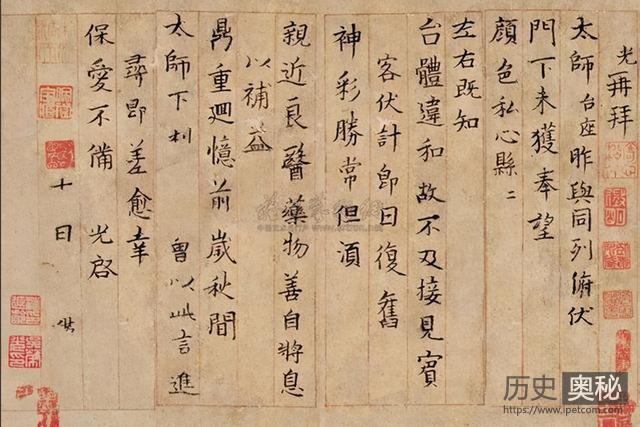 光再拜
太師台座昨與同列俯伏
門下未獲奉望
顏色私心縣〻
左右既知
台體違和故不及接見賓
客伏計即日復舊
神彩勝常但須
親近良醫藥物善自將息
以補益
鼎重迴憶前歲秋間
太師下利 曾以此言進
尋即差愈幸
保愛不備 光啓
十日
历史奥秘
https://www.ipetcom.com/